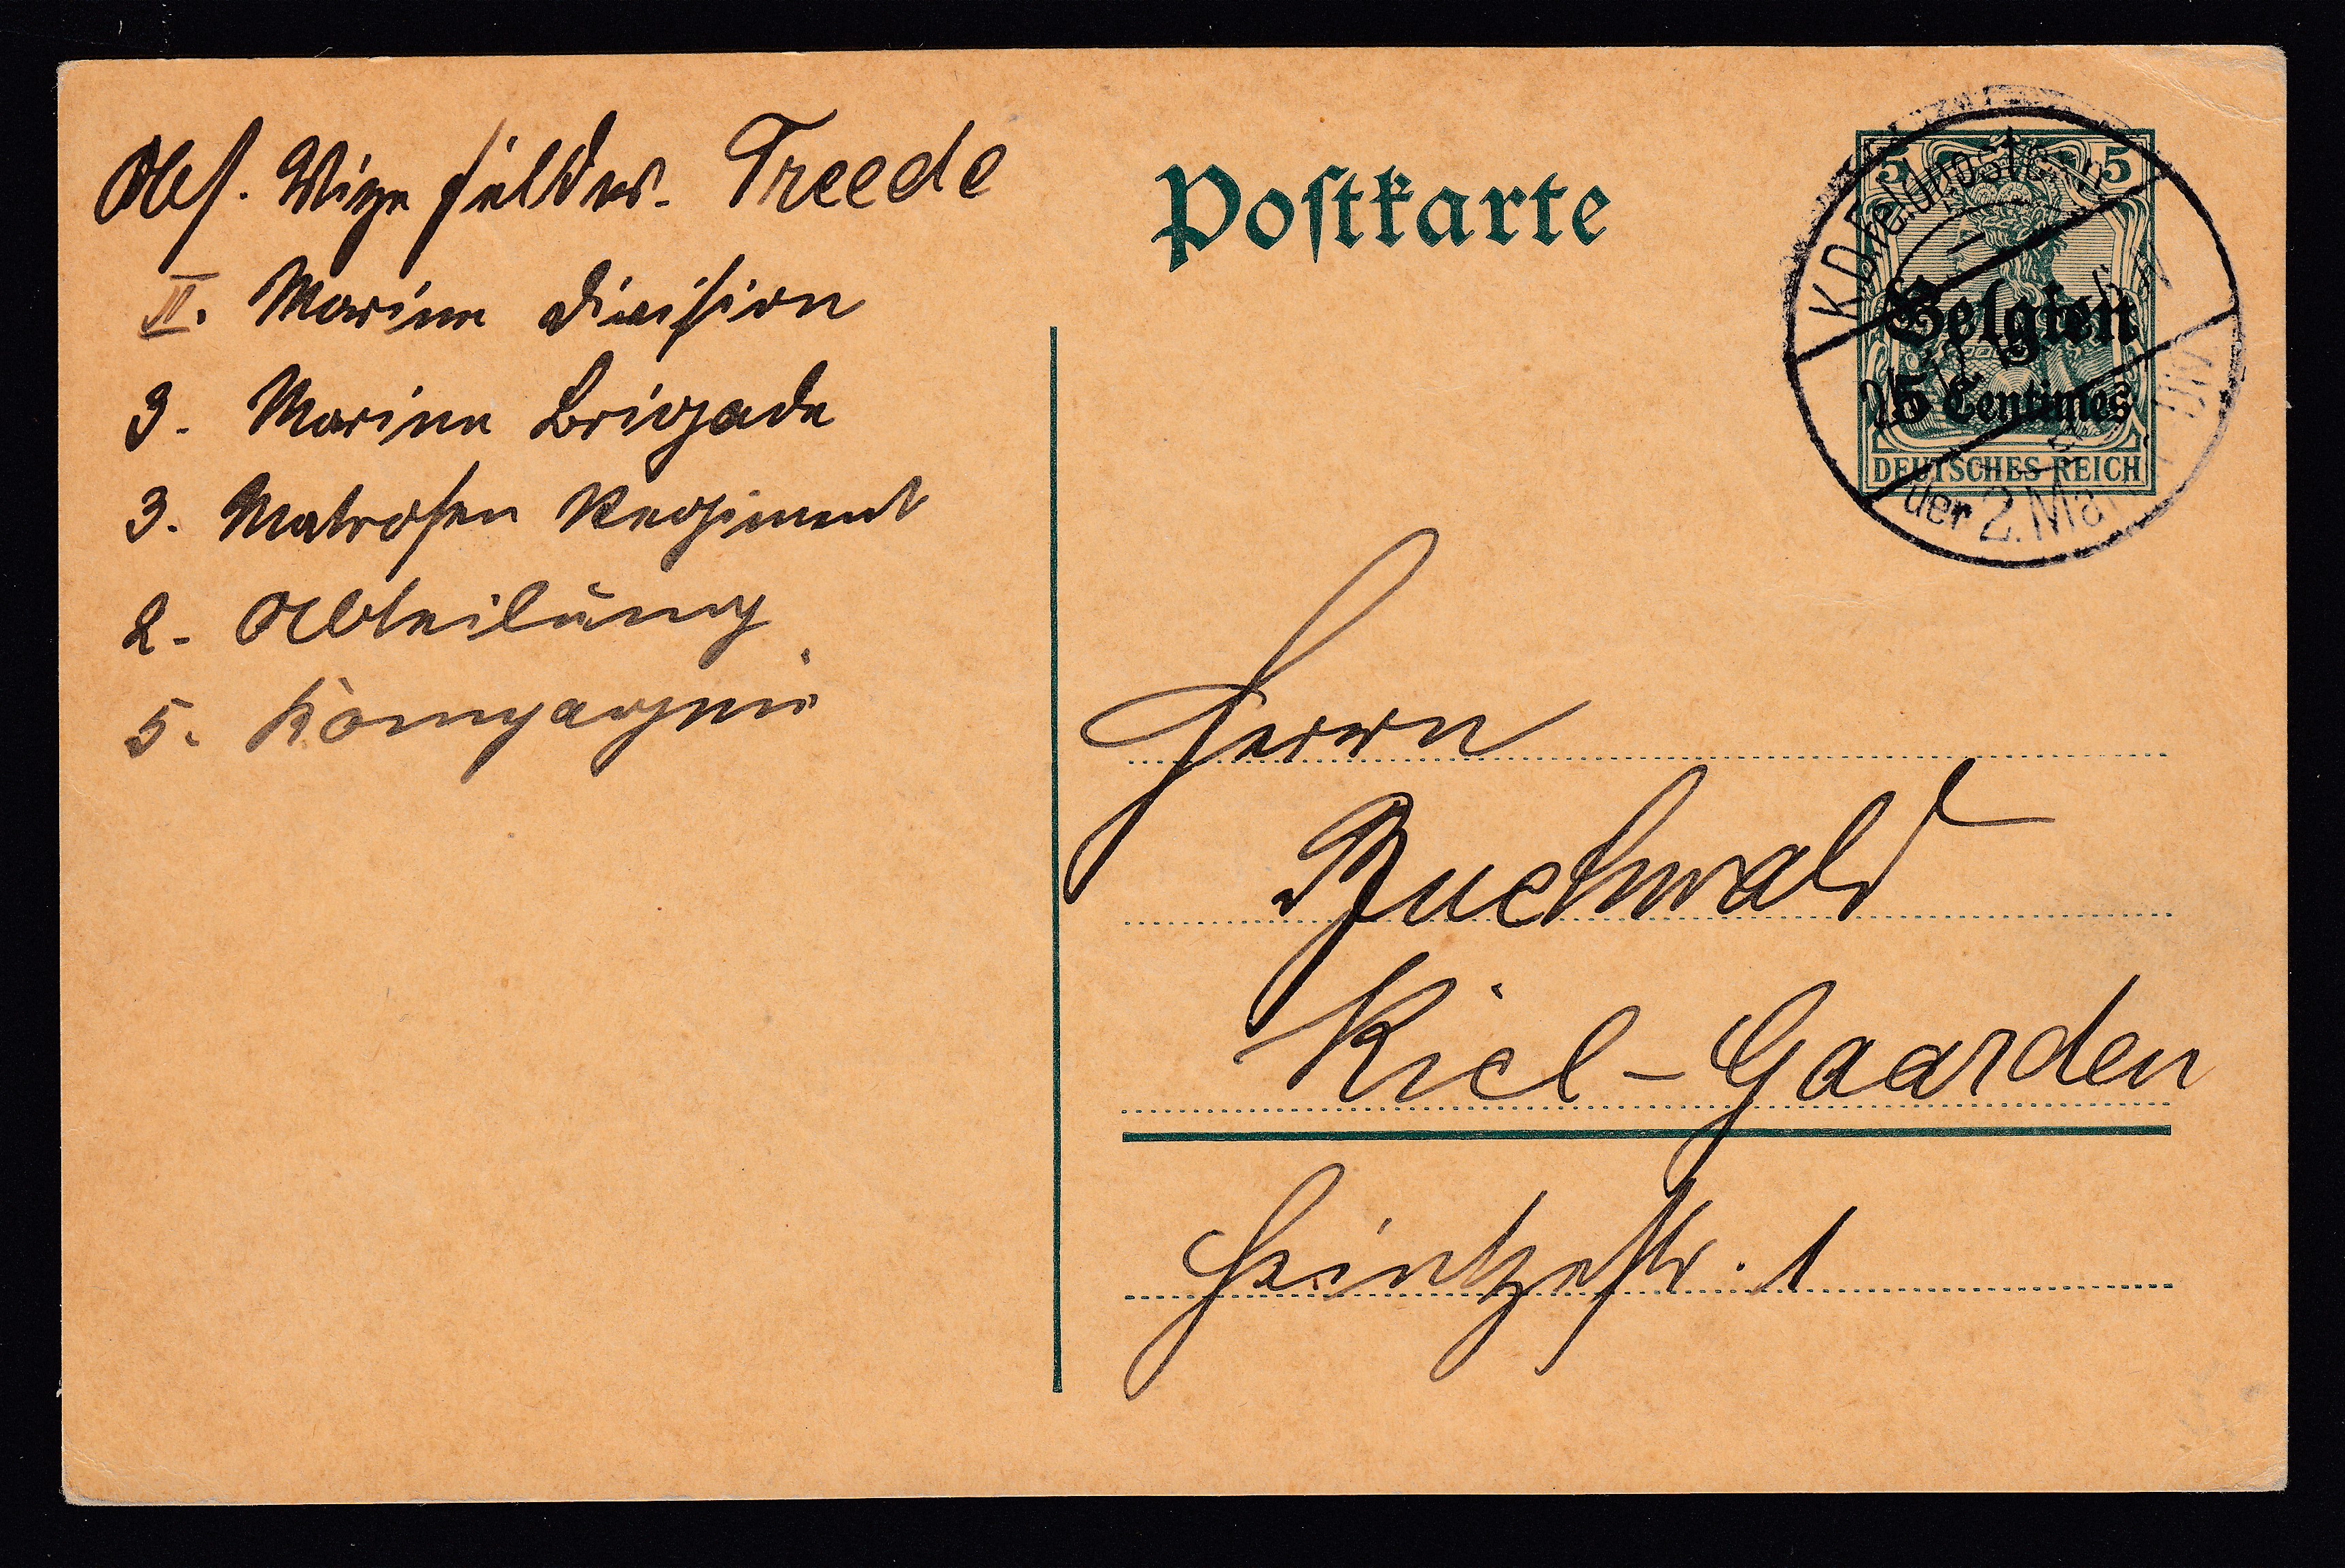 Abs. Vize feldw. Treede
II. Marine Division
3. Marine Brigade
3. Matrosen Regiment
2. Abteilung
5. Kompagnie
Postkarte
5 5
Belgien
5 Centimes
DEUTSCHES REICH
K.D.Feldpost
der 2. Mar.
Herrn
Buchwald
Kiel-Gaarden
Heintzestr. 1